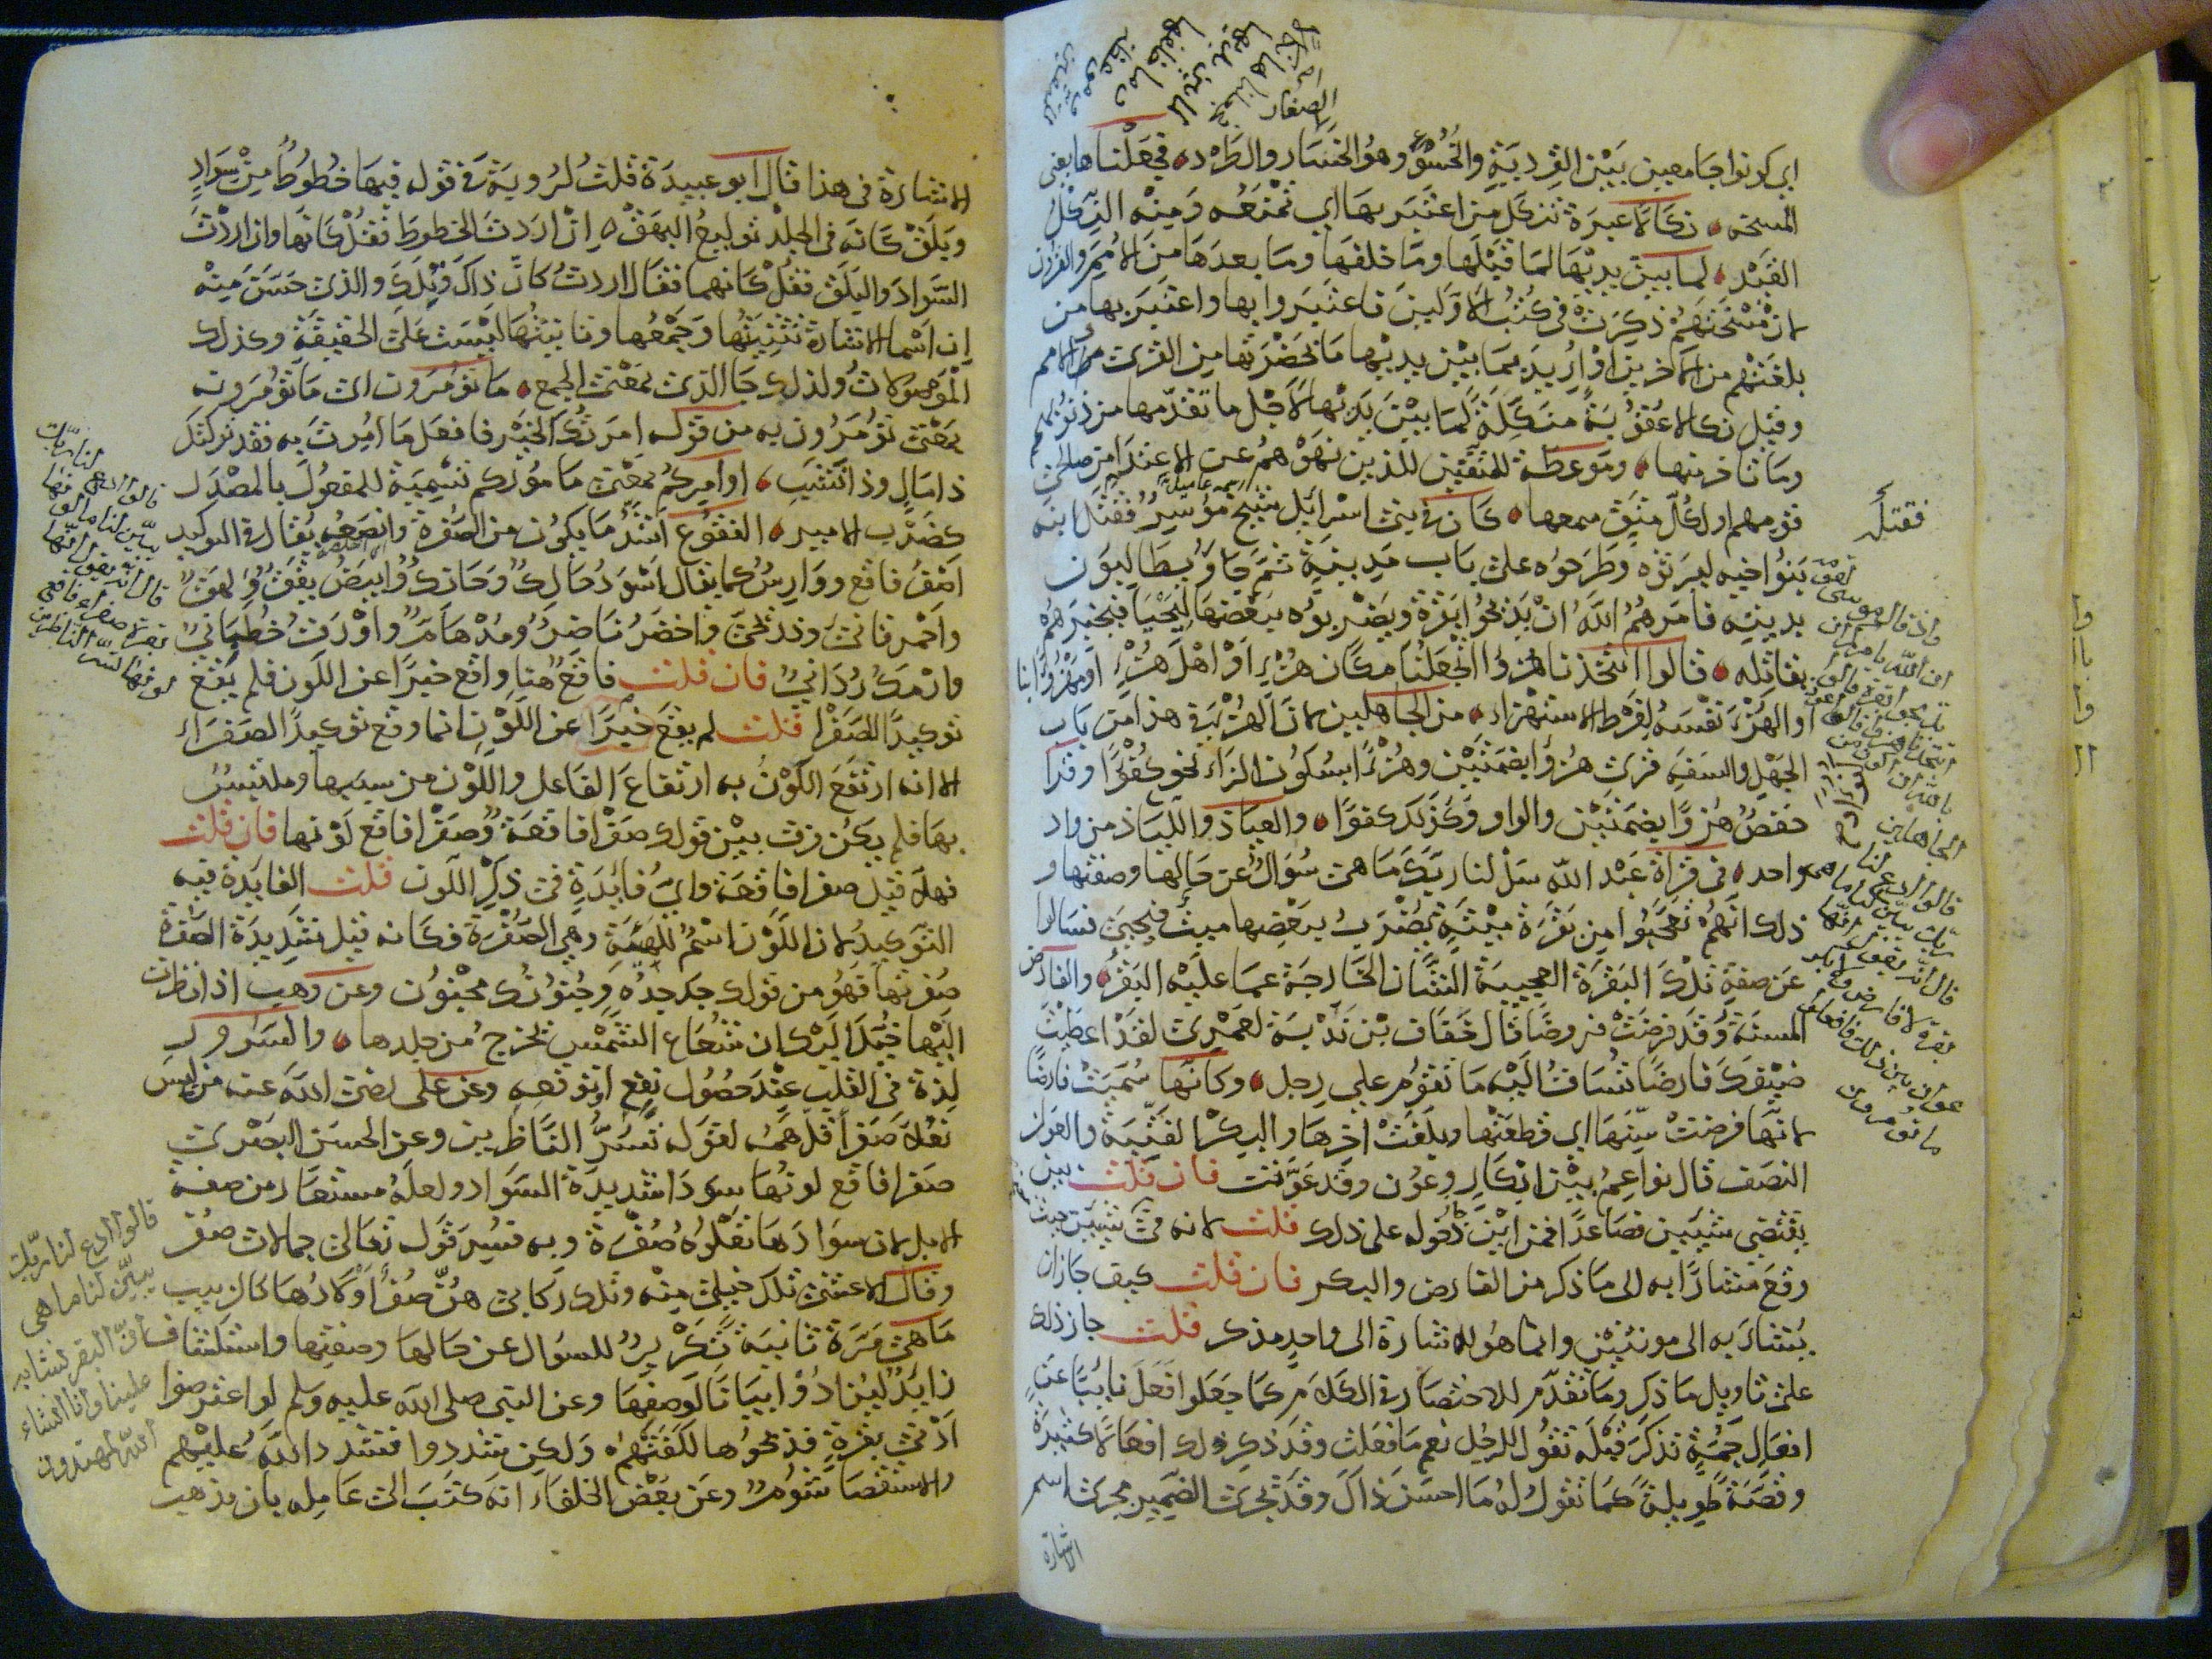 اي كونوا جامعين بين القردية والخسوء وهو الخسار والطرد فجعلناها يعني
المسخة نكالا عبرة تنكل من اعتبر بها اي تمنعه ومنه النكل
القيد لما بين يديها لما قبلها وما خلفها وما بعدها من الامم والقرون
لان مسختهم ذكرت في كتب الاولين فاعتبروا بها واعتبر بها من
بلغتهم من الاخرين او اريد بما بين يديها ما بحضرتها من القرى والامم
وقيل نكالا عقوبة منكلة لما بين يديها لاجل ما تقدمها من ذنوبهم
وما تاخر منها وموعظة للمتقين للذين نهوهم عن الاعتداء من صالحي
قومهم او لكل متق سمعها كان في بني اسرائل شيخ موسر فقتل ابنه
بنوا اخيه ليرثوه وطرحوه على باب مدينة ثم جاوا يطالبون
بديته فامرهم الله ان يذبحوا بقرة ويضربوه ببعضها ليحيا فيخبرهم
بقاتله قالوا اتتخذنا هزوا اتجعلنا مكان هزء او اهل هزء او مهزوا بنا
او الهزء نفسه لفرط الاستهزاء من الجاهلين لان الهزء في هذا من باب
الجهل والسفه قرئ هزؤا بضمتين وهزءا بسكون الزاء نحو كفؤا وقرا
حفص هزوا بضمتين والواو وكذلك كفوا والعياذ واللياذ من واد
واحد في قراة عبد الله سل لنا ربك ما هي سؤال عن حالها وصفتها و
ذلك انهم تعجبوا من بقرة ميتة يضرب ببعضها ميت فيحيى فسالوا
عن صفة تلك البقرة العجيبة الشان الخارجة عما عليه البقر والفارض
المسنة وقد فرضت فروضا قال خفاف بن ندبة لعمري لقد اعطيت
ضيفك فارضا تساق اليه ما تقوم على رجل وكانها سميت فارضا
لانها فرضت سنها اي قطعتها وبلغت اخرها والبكر الفتية والعوان
النصف قال نواعم بين ابكار وعون وقد عونت فان قلت بين
يقتضي شيئين فصاعدا فمن اين دخوله على ذلك قلت لانه في شيئين حيث
وقع مشارا به الى ما ذكر من الفارض والبكر فان قلت كيف جاز ان
يشار به الى مونثين وانما هو للاشارة الى واحد مذكر قلت جاز ذلك
على تاويل ما ذكر وما تقدم للاختصار في الكلام كما جعلوا فعل نايبا عن
افعال جمة تذكر قبله تقول للرجل نعم ما فعلت وقد ذكر لك افعالا كثيرة
وقصة طويلة كما تقول له ما احسن ذاك وقد تجرى الضمير مجرى اسم
الاشارة
فقتله
واذ قال موسى لقومه
ان الله يامركم ان
تذبحوا بقرة قالوا
اتتخذنا هزوا قال اعوذ
بالله ان اكون من
الجاهلين
قالوا ادع لنا
ربك يبين لنا ما هي
قال انه يقول انها
بقرة لا فارض ولا بكر
عوان بين ذلك فافعلوا
ما تؤمرون
الاشارة في هذا قال ابو عبيدة قلت لروبة في قوله فيها خطوط من سواد
وبلق كانه في الجلد توليع البهق ان اردت الخطوط فقل كانها وان اردت
السواد والبلق فقل كانهما فقال اردت كان ذاك ويلك والذي حسن منه
ان اسما الاشارة تثنيتها وجمعها وتانيثها ليست على الحقيقة وكذلك
الموصولات ولذلك جا الذي بمعنى الجمع ما تؤمرون اي ما تؤمرونه
بمعنى تؤمرون به من قوله امرتك الخير فافعل ما امرت به فقد تركتك
ذا مال وذا نشب او امركم بمعنى ماموركم تسمية للمفعول بالمصدر
كضرب الامير الفقوع اشد ما يكون من الصفرة وانصعه يقال في التوكيد
اصفر فاقع ووارس كما يقال اسود حالك وحانك وابيض يقق ولهق
واحمر قاني وذريحي واخضر ناضر ومدهام واورق خطباني
وارمك رداني فان قلت فاقع هنا واقع خبرا عن اللون فلم يقع
توكيدا لصفرا قلت لم يقع خبرا عن اللون انما وقع توكيدا لصفراء
الا انه ارتفع اللون به ارتفاع الفاعل واللون من سببها وملتبس
بها فلم يكن فرق بين قولك صفرا فاقعة وصفرا فاقع لونها فان قلت
فهلا قيل صفرا فاقعة واي فايدة في ذكر اللون قلت الفايدة فيه
التوكيد لان اللون اسم للهيئة وهي الصفرة فكانه قيل شديدة الصفرة
صفرتها فهو من قولك جد جده وجنونك مجنون وعن وهب اذا نظرت
اليها خيل اليك ان شعاع الشمس يخرج من جلدها والسرور
لذة في القلب عند حصول نفع او توقعه وعن علي رضي الله عنه من لبس
نعلا صفرا قل همه لقوله تسر الناظرين وعن الحسن البصري
صفرا فاقع لونها سودا شديدة السواد ولعله مستعار من صفة
الابل لان سوادها تعلوه صفرة وبه فسر قوله تعالى جمالات صفر
وقال الاعشى تلك خيلي منه وتلك ركابي هن صفر اولادها كالزبيب
ما هي مرة ثانية تكرير للسوال عن حالها وصفتها واستكشاف
زايد ليزدادوا بيانا لوصفها وعن النبي صلى الله عليه وسلم لو اعترضوا
ادنى بقرة فذبحوها لكفتهم ولكن شددوا فشدد الله عليهم
والاستقصا شوم وعن بعض الخلفاء انه كتب الى عامله بان يذهب
قالوا ادع لنا ربك
يبين لنا ما لونها
قال انه يقول انها
بقرة صفراء فاقع
لونها تسر الناظرين
قالوا ادع لنا ربك
يبين لنا ما هي
ان البقر تشابه
علينا وانا ان شاء
الله لمهتدون